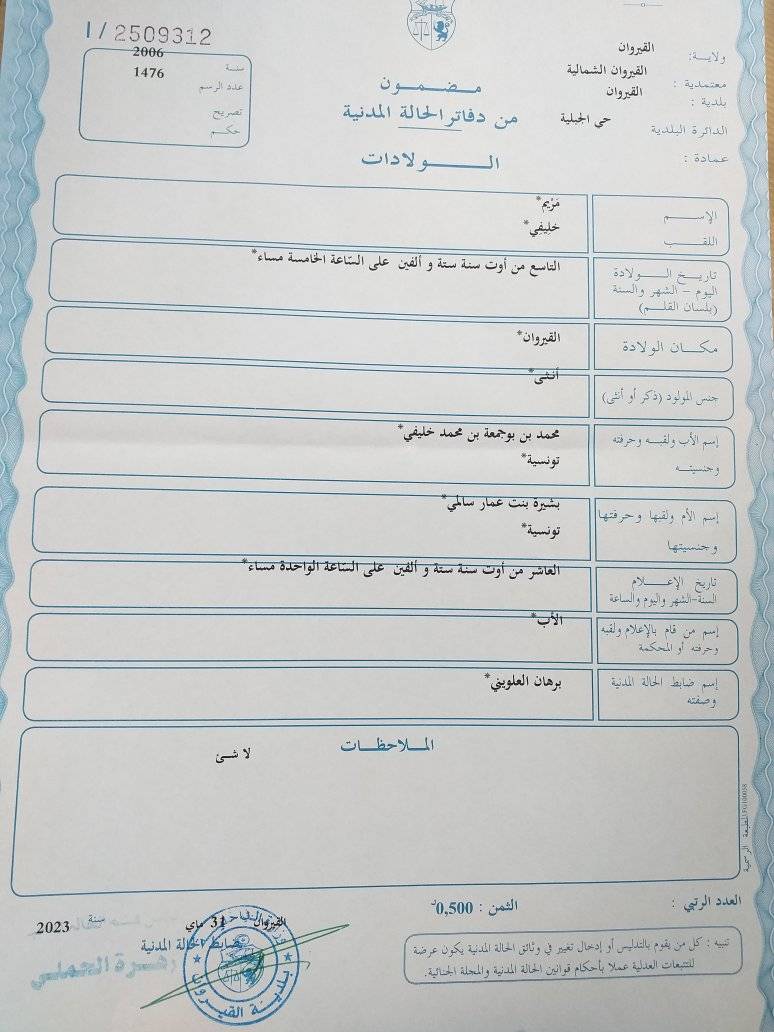 I/ 2509312
ولايـــة: القيروان
معتمدية : القيروان الشمالية
بلدية : القيروان
الدائرة البلدية حي الجبلية
عمادة :
سنة 2006
عدد الرسم 1476
تصريح
حكم
مضمون
من دفاتر الحالة المدنية
الــولادات
الإســم مَرْيم*
اللقب خليفي*
تاريخ الــولادة التاسع من أوت سنة ستة و ألفين على السّاعة الخامسة مساء*
اليوم - الشهر والسنة
(بلسان القلم)
مكــان الولادة القيروان*
جنس المولود (ذكر أو أنثى) أنثى*
إسم الأب ولقبه وحرفته محمد بن بوجمعة بن محمد خليفي*
وجنسيته تونسية*
إسم الأم ولقبها وحرفتها بشيرة بنت عمار سالمي*
وجنسيتها تونسية*
تاريخ الإعــلام العاشر من أوت سنة ستة و ألفين على السّاعة الواحدة مساء*
السنة-الشهر واليوم والساعة
إسم من قام بالإعلام ولقبه الأب*
وحرفته أو المحكمة
إسم ضابط الحالة المدنية برهان العلويني*
وصفته
الملاحظــات
لا شئ
المطبعة الرسمية
العدد الرتبي :
الثمن : 0,500د
القيروان 31 ماي سنة 2023
ضابط الحالة المدنية
زهرة الجملي
بلدية القيروان
تنبيه : كل من يقوم بالتدليس أو إدخال تغيير في وثائق الحالة المدنية يكون عرضة
للتتبعات العدلية عملا بأحكام قوانين الحالة المدنية والمجلة الجنائية.